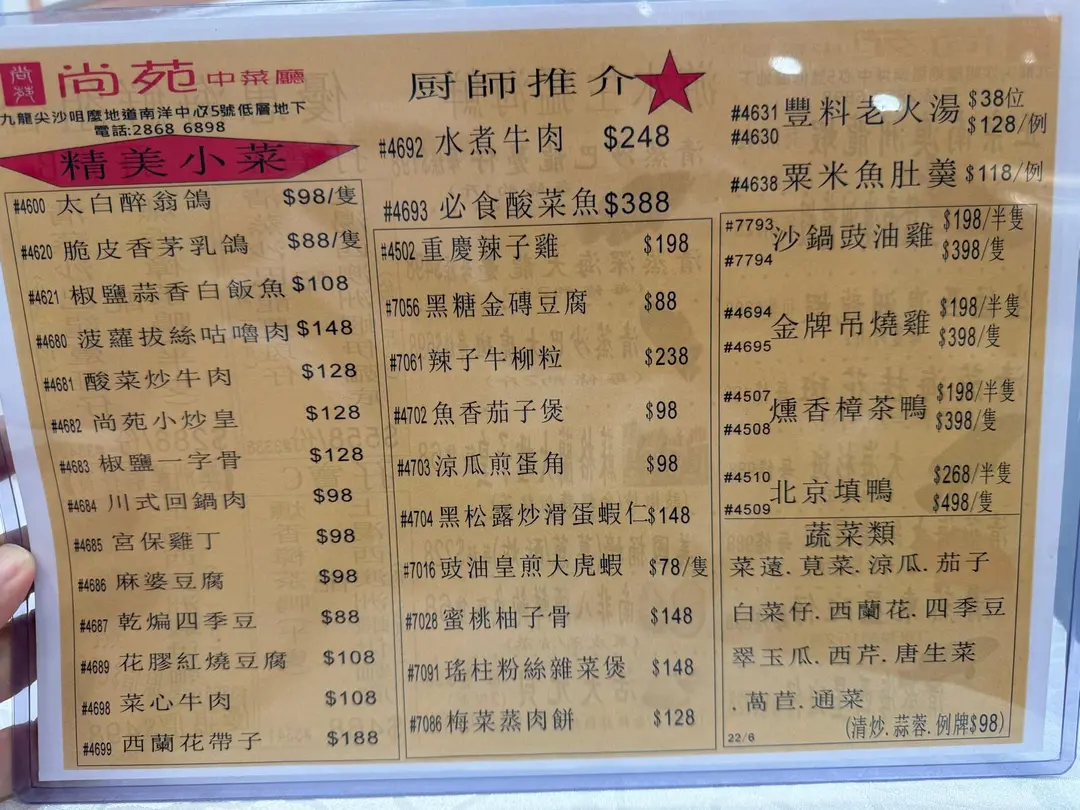 尚苑
尚苑中菜廳
九龍尖沙咀麼地道南洋中心75號低層地下
電話:2868 6898
精美小菜
#4600 太白醉翁鴿 $98/隻
#4620 脆皮香茅乳鴿 $88/隻
#4621 椒鹽蒜香白飯魚 $108
#4680 菠蘿拔絲咕嚕肉 $148
#4681 酸菜炒牛肉 $128
#4682 尚苑小炒皇 $128
#4683 椒鹽一字骨 $128
#4684 川式回鍋肉 $98
#4685 宮保雞丁 $98
#4686 麻婆豆腐 $98
#4687 乾煸四季豆 $88
#4689 花膠紅燒豆腐 $108
#4698 菜心牛肉 $108
#4699 西蘭花帶子 $188
厨師推介
#4692 水煮牛肉 $248
#4693 必食酸菜魚 $388
#4502 重慶辣子雞 $198
#7056 黑糖金磚豆腐 $88
#7061 辣子牛柳粒 $238
#4702 魚香茄子煲 $98
#4703 涼瓜煎蛋角 $98
#4704 黑松露炒滑蛋蝦仁 $148
#7016 豉油皇煎大虎蝦 $78/隻
#7028 蜜桃柚子骨 $148
#7091 瑤柱粉絲雜菜煲 $148
#7086 梅菜蒸肉餅 $128
#4631 豐料老火湯 $38位
#4630 $128/例
#4638 粟米魚肚羹 $118/例
#7793 沙鍋豉油雞 $198/半隻
#7794 $398/隻
#4694 金牌吊燒雞 $198/半隻
#4695 $398/隻
#4507 燻香樟茶鴨 $198/半隻
#4508 $398/隻
#4510 北京填鴨 $268/半隻
#4509 $498/隻
蔬菜類
菜薳. 莧菜. 涼瓜. 茄子
白菜仔. 西蘭花. 四季豆
翠玉瓜. 西芹. 唐生菜
. 萵苣. 通菜
(清炒. 蒜蓉. 例牌$98)
22/6